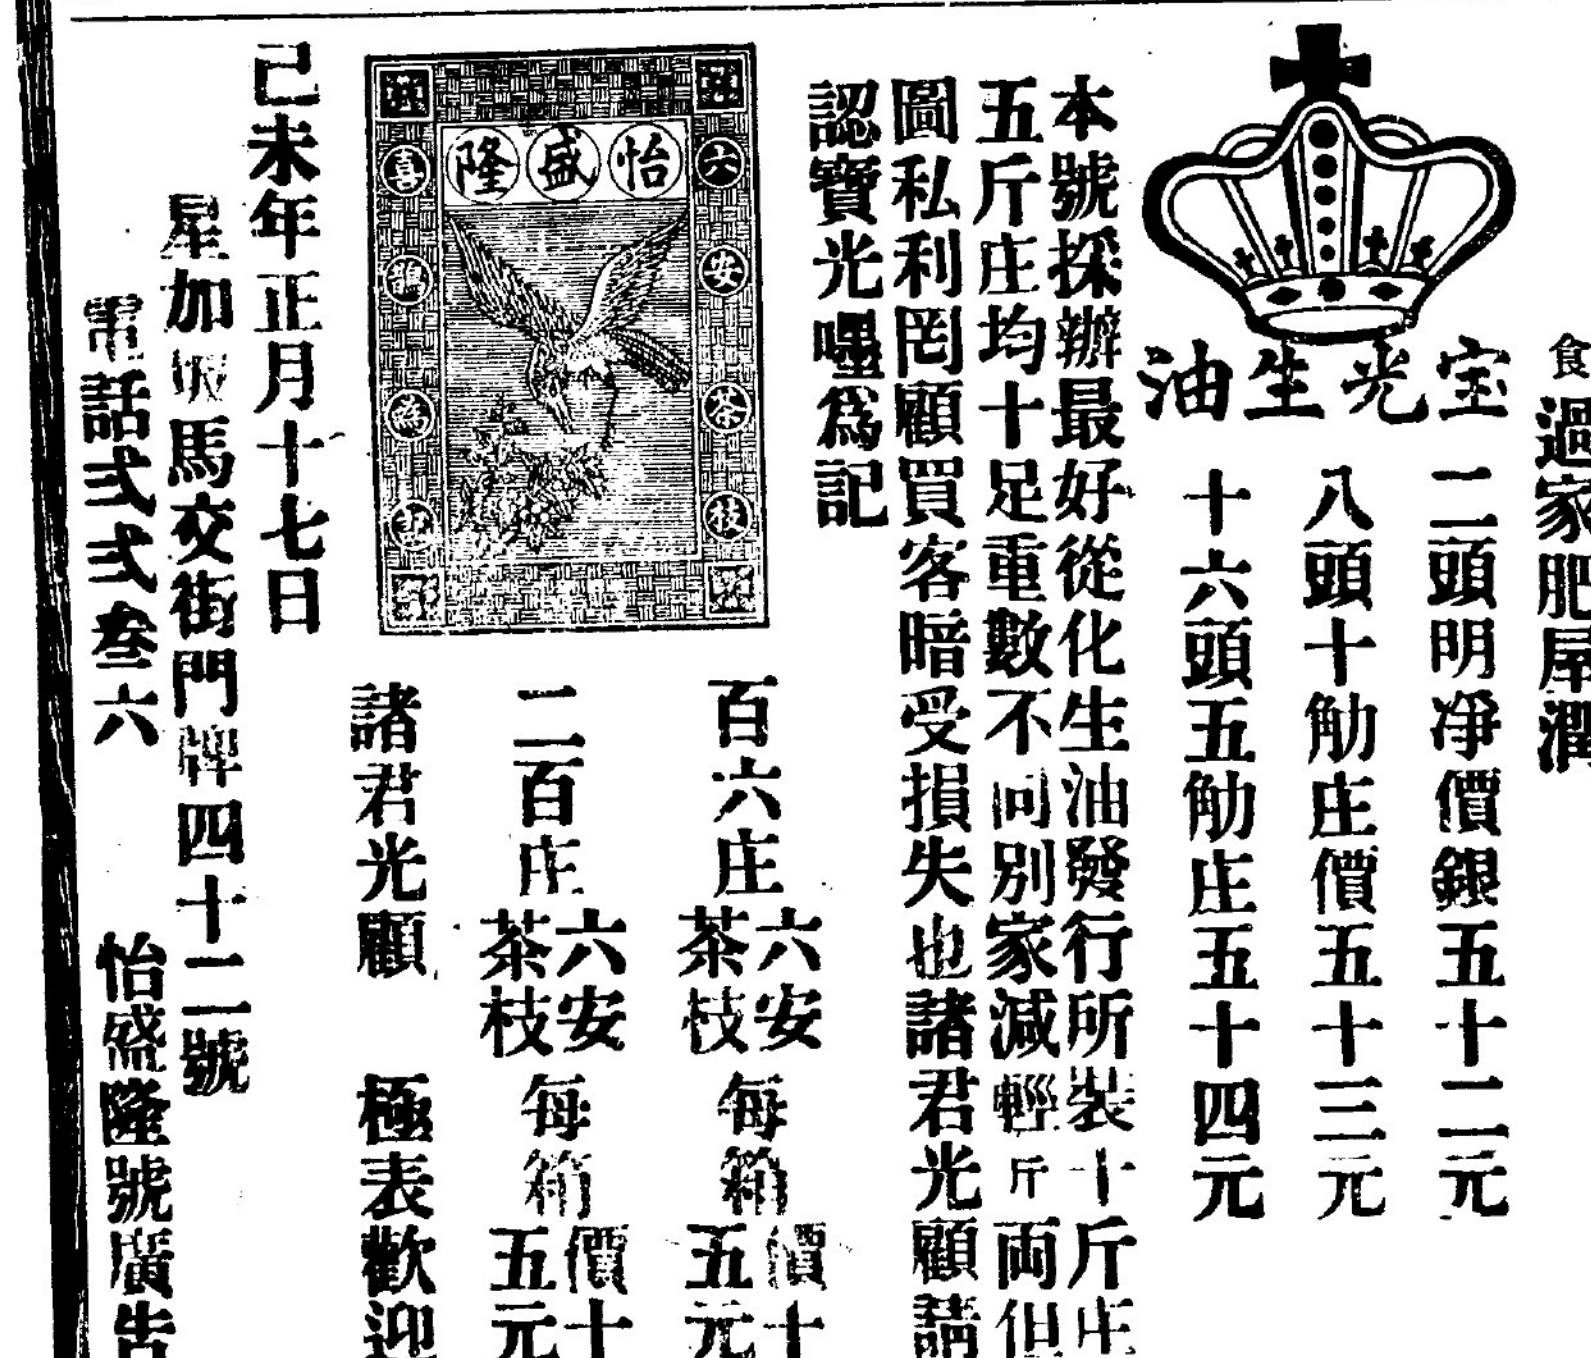 食過家肥屋潤
宝光生油
二頭明凈價銀五十二元
八頭十觔庄價五十三元
十六頭五觔庄五十四元
本號採辦最好從化生油發行所裝十斤庄
五斤庄均十足重數不同別家減輕斤両但
圖私利罔顧買客暗受損失也諸君光顧請
認寶光嘜為記
怡盛隆
六安茶枝
喜鵲為
百六庄六安茶枝每箱價十五元
二百庄六安茶枝每箱價十五元
諸君光顧 極表歡迎
己未年正月十七日
星加坡馬交街門牌四十二號
電話弍弍叁六 怡盛隆號廣告